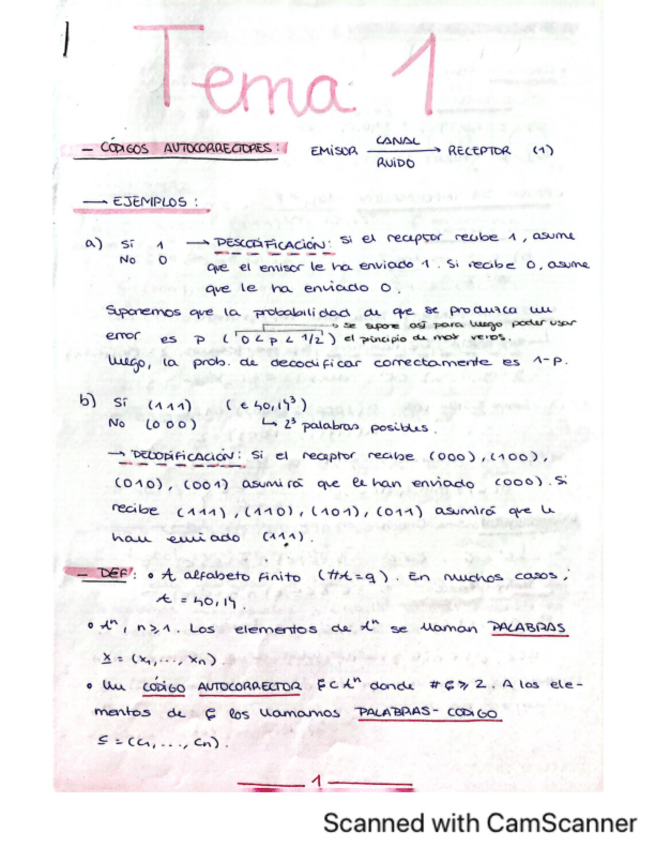 1
Tema 1
- CÓDIGOS AUTOCORRECTORES: EMISOR CANAL RUIDO → RECEPTOR (1)
→ EJEMPLOS:
a) Sí 1 → DESCODIFICACIÓN: Si el receptor recibe 1, asume
No 0 que el emisor le ha enviado 1. Si recibe 0, asume
que le ha enviado 0.
Suponemos que la probabilidad de que se produzca un
error es p (0 < p < 1/2) → se supone así para luego poder usar
el principio de max veros.
luego, la prob. de decodificar correctamente es 1-p.
b) Sí (111) (∈ {0,1}³)
No (000) ↳ 2³ palabras posibles.
→ DECODIFICACIÓN: Si el receptor recibe (000), (100),
(010), (001) asumirá que le han enviado (000). Si
recibe (111), (110), (101), (011) asumirá que le
han enviado (111).
- DEF: • A alfabeto finito (#A = q). En muchos casos,
A = {0,1}.
• Aⁿ, n ≥ 1. Los elementos de Aⁿ se llaman PALABRAS
x = (x₁, ..., xₙ).
• Un CÓDIGO AUTOCORRECTOR C ⊂ Aⁿ donde #C ≥ 2. A los ele-
mentos de C los llamamos PALABRAS-CÓDIGO
c = (c₁, ..., cₙ).
1
Scanned with CamScanner